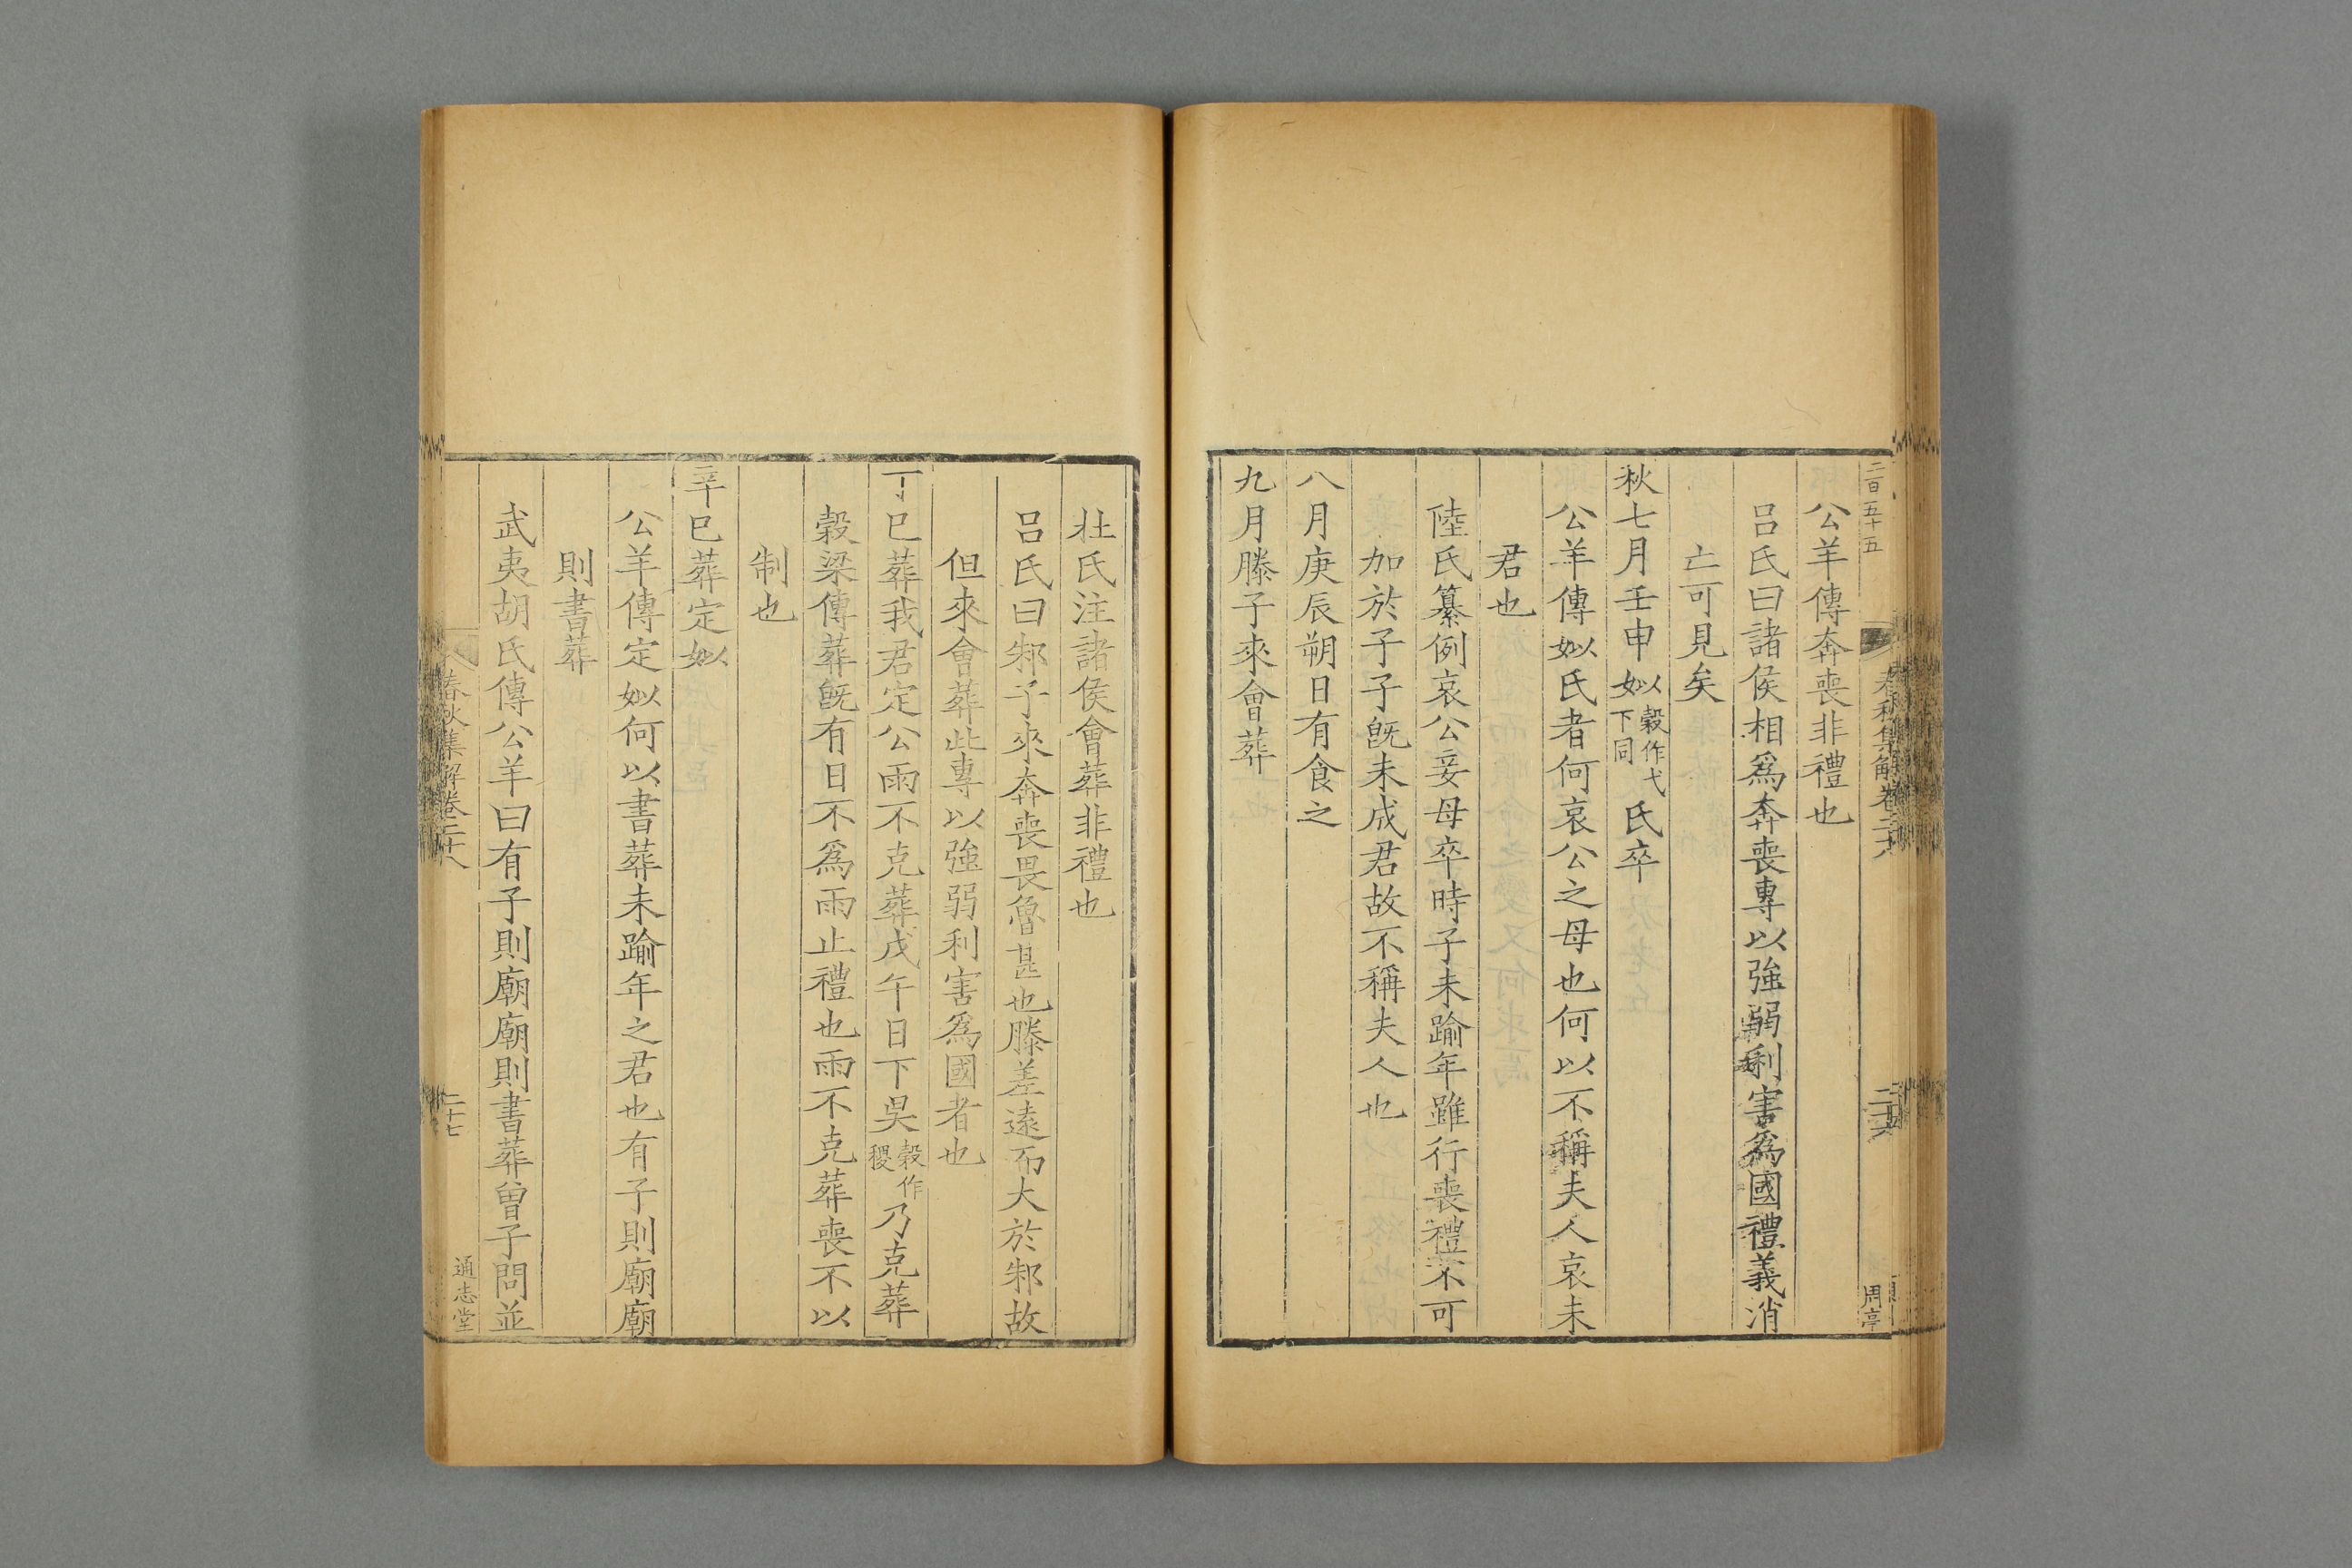 二百五十五
春秋集解卷二十八
二十六
周亭
公羊傳奔喪非禮也
吕氏曰諸侯相爲奔喪專以強弱利害爲國禮義消
亡可見矣
秋七月壬申姒穀作弋下同氏卒
公羊傳姒氏者何哀公之母也何以不稱夫人哀未
君也
陸氏纂例哀公妾母卒時子未踰年雖行喪禮不可
加於子子旣未成君故不稱夫人也
八月庚辰朔日有食之
九月滕子來會葬
杜氏注諸侯會葬非禮也
吕氏曰邾子來奔喪畏魯甚也滕差遠而大於邾故
但來會葬此專以強弱利害爲國者也
丁巳葬我君定公雨不克葬戊午日下吳穀作稷乃克葬
穀梁傳葬旣有日不爲雨止禮也雨不克葬喪不以
制也
辛巳葬定姒
公羊傳定姒何以書葬未踰年之君也有子則廟廟
則書葬
武夷胡氏傳公羊曰有子則廟廟則書葬曾子問並
春秋集解卷二十八
二十七
通志堂